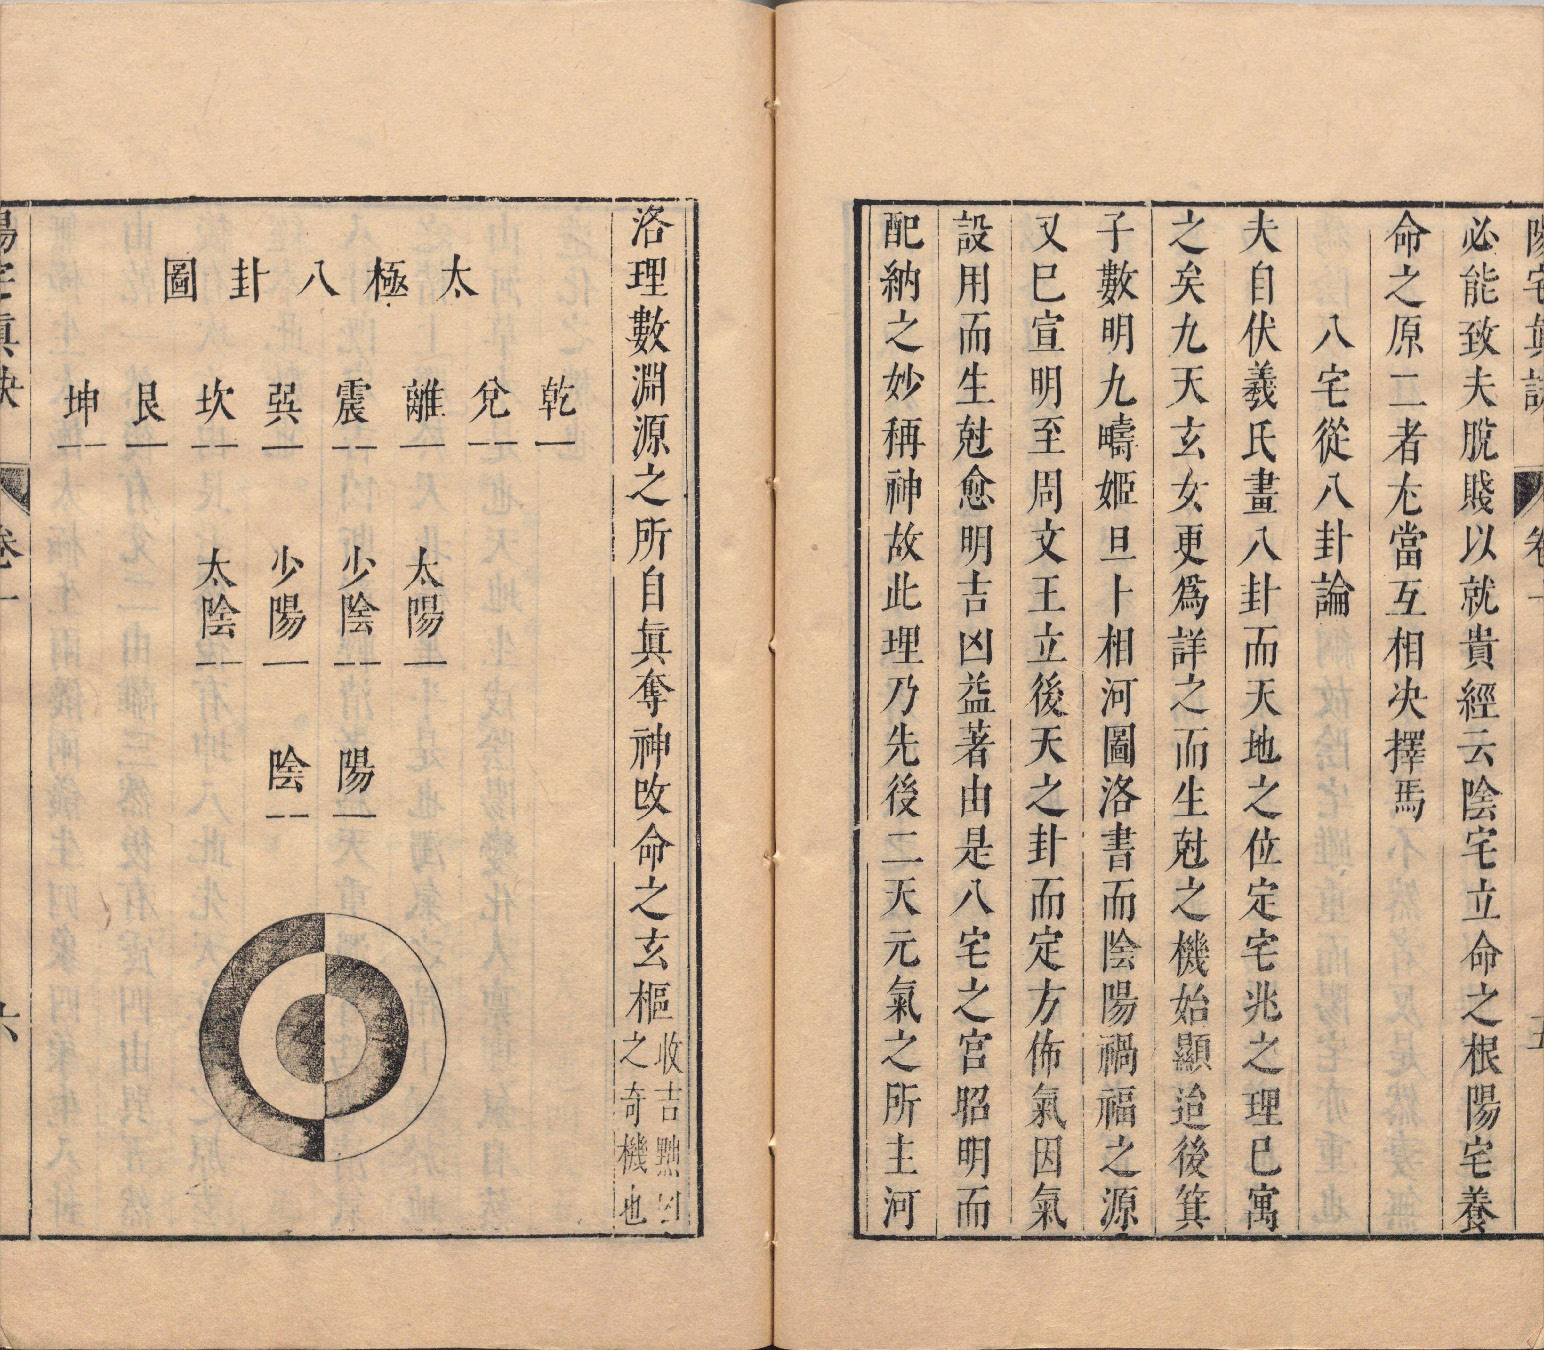 陽宅眞訣
卷一
五
必能致夫脫賤以就貴經云陰宅立命之根陽宅養
命之原二者尢當互相决擇焉
八宅從八卦論
夫自伏羲氏畫八卦而天地之位定宅兆之理巳寓
之矣九天玄女更爲詳之而生尅之機始顯迨後箕
子數明九疇姬旦卜相河圖洛書而陰陽禍福之源
又巳宣明至周文王立後天之卦而定方佈氣因氣
設用而生尅愈明吉凶益著由是八宅之宫昭明而
配納之妙稱神故此理乃先後二天元氣之所主河
洛理數淵源之所自眞奪神改命之玄樞
收吉黜凶
之奇機也
太極八卦圖
乾兌離震巽坎艮坤
太陽 少陰 少陽 太陰
陽 陰
陽宅眞訣
卷一
六